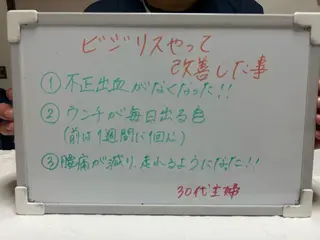 ビジリスやって
改善した事
① 不正出血がなくなった!!
② ウンチが毎日出る色
(前は1週間に1回に)
③ 腰痛が減り、走れるようになた!!
30代主婦